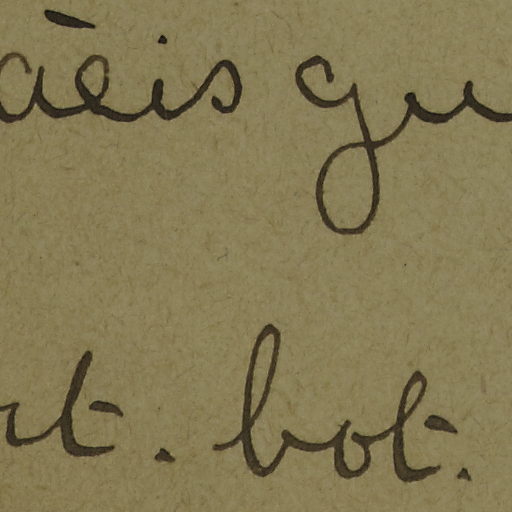 aëis gu
rt. bot.